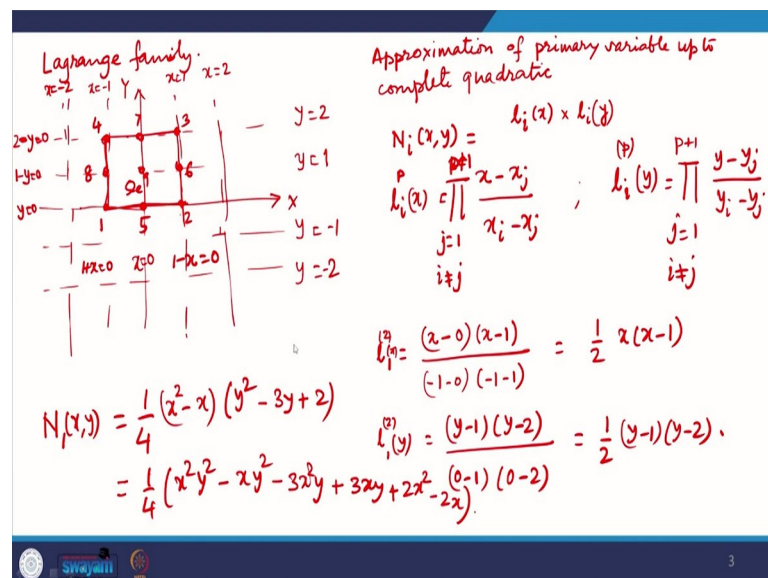 Lagrange family.
x=-2 x=-1 Y x=1 x=2
4 7 3
2-y=0
y=2
1-y=0 8 9 6
y=1
Ωe
y=0 X
1 5 2
y=-1
1+x=0 x=0 1-x=0
y=-2
Approximation of primary variable up to
complete quadratic
N_i(x,y) = l_i(x) × l_i(y)
l_i^p(x) = ∏_{j=1, i≠j}^{p+1} (x-x_j)/(x_i-x_j) ; l_i^{(p)}(y) = ∏_{j=1, i≠j}^{p+1} (y-y_j)/(y_i-y_j)
l_1^{(2)}(x) = (x-0)(x-1)/((-1-0)(-1-1)) = 1/2 x(x-1)
l_1^{(2)}(y) = (y-1)(y-2)/((0-1)(0-2)) = 1/2 (y-1)(y-2).
N_1(x,y) = 1/4 (x²-x)(y²-3y+2)
= 1/4 (x²y² - xy² - 3x²y + 3xy + 2x² - 2x).
swayam
3